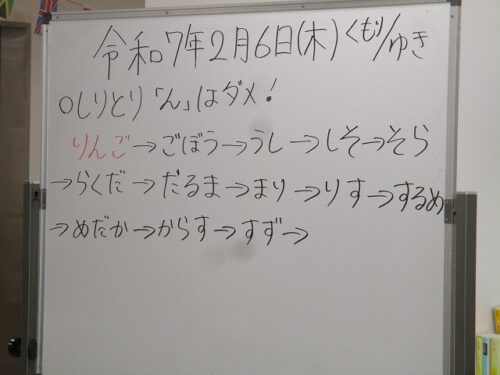 令和7年2月6日(木)くもり/ゆき
○しりとり「ん」はダメ!
りんご→ごぼう→うし→しそ→そら
→らくだ→だるま→まり→りす→するめ
→めだか→からす→すず→